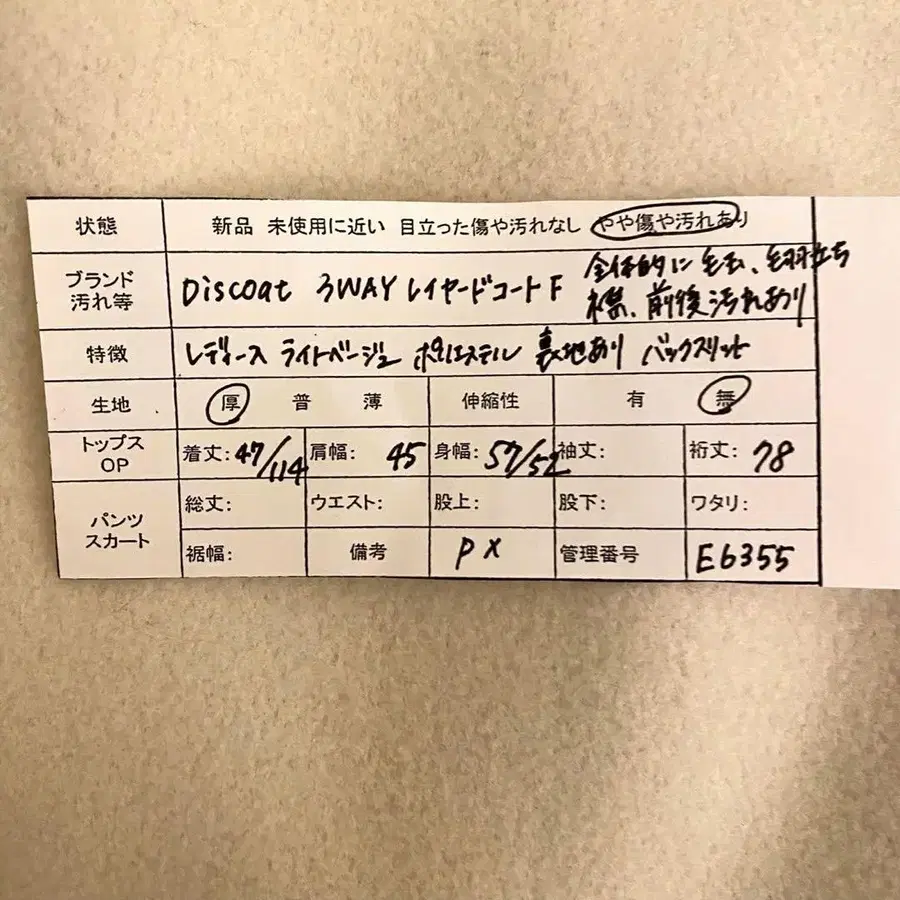 状態 新品 未使用に近い 目立った傷や汚れなし やや傷や汚れあり
ブランド 汚れ等 Discoat 3WAY レイヤードコート F 全体的に毛玉、毛羽立ち
襟、前後汚れあり
特徴 レディース ライトベージュ ポリエステル 裏地あり バックスリット
生地 厚 普 薄 伸縮性 有 無
トップス OP 着丈:47/114 肩幅:45 身幅:57/52 袖丈: 裄丈:78
パンツ スカート 総丈: ウエスト: 股上: 股下: ワタリ:
裾幅: 備考 PX 管理番号 E6355